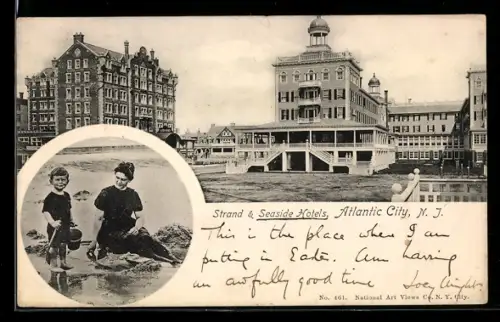 Strand & Seaside Hotels, Atlantic City, N. J.
This is the place where I am
putting in Easter. Am having
an awfully good time
No. 461. National Art Views Co., N. Y. City.